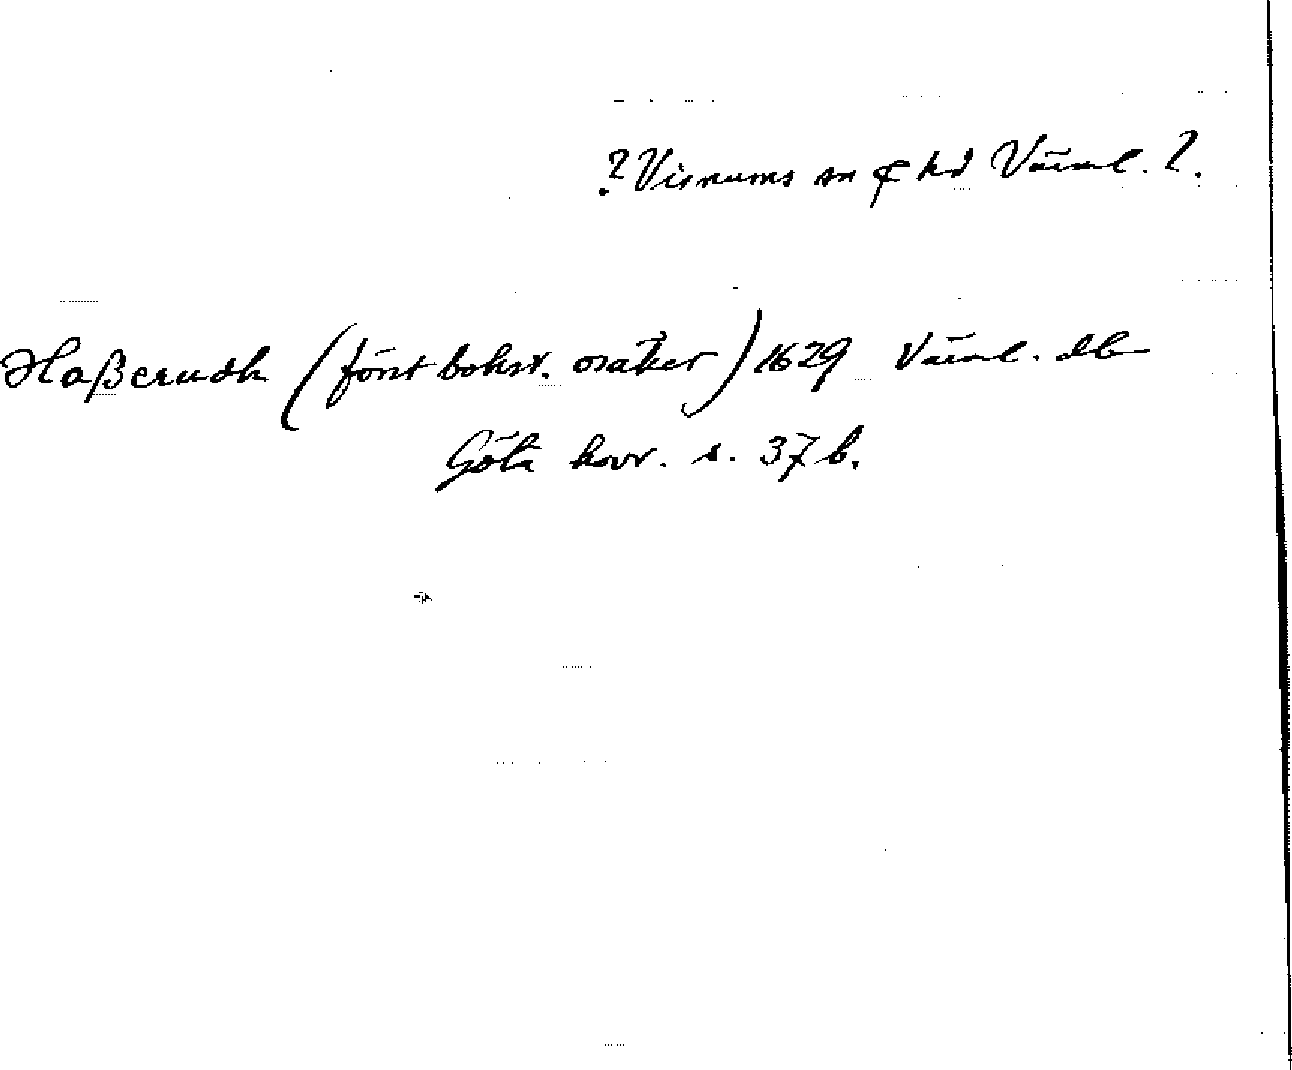 ? Visnums sn & hd Värml. ?.
Haßerudh (först bokst. osäker) 1629 Värml. db
Göta hovr. s. 37 b.